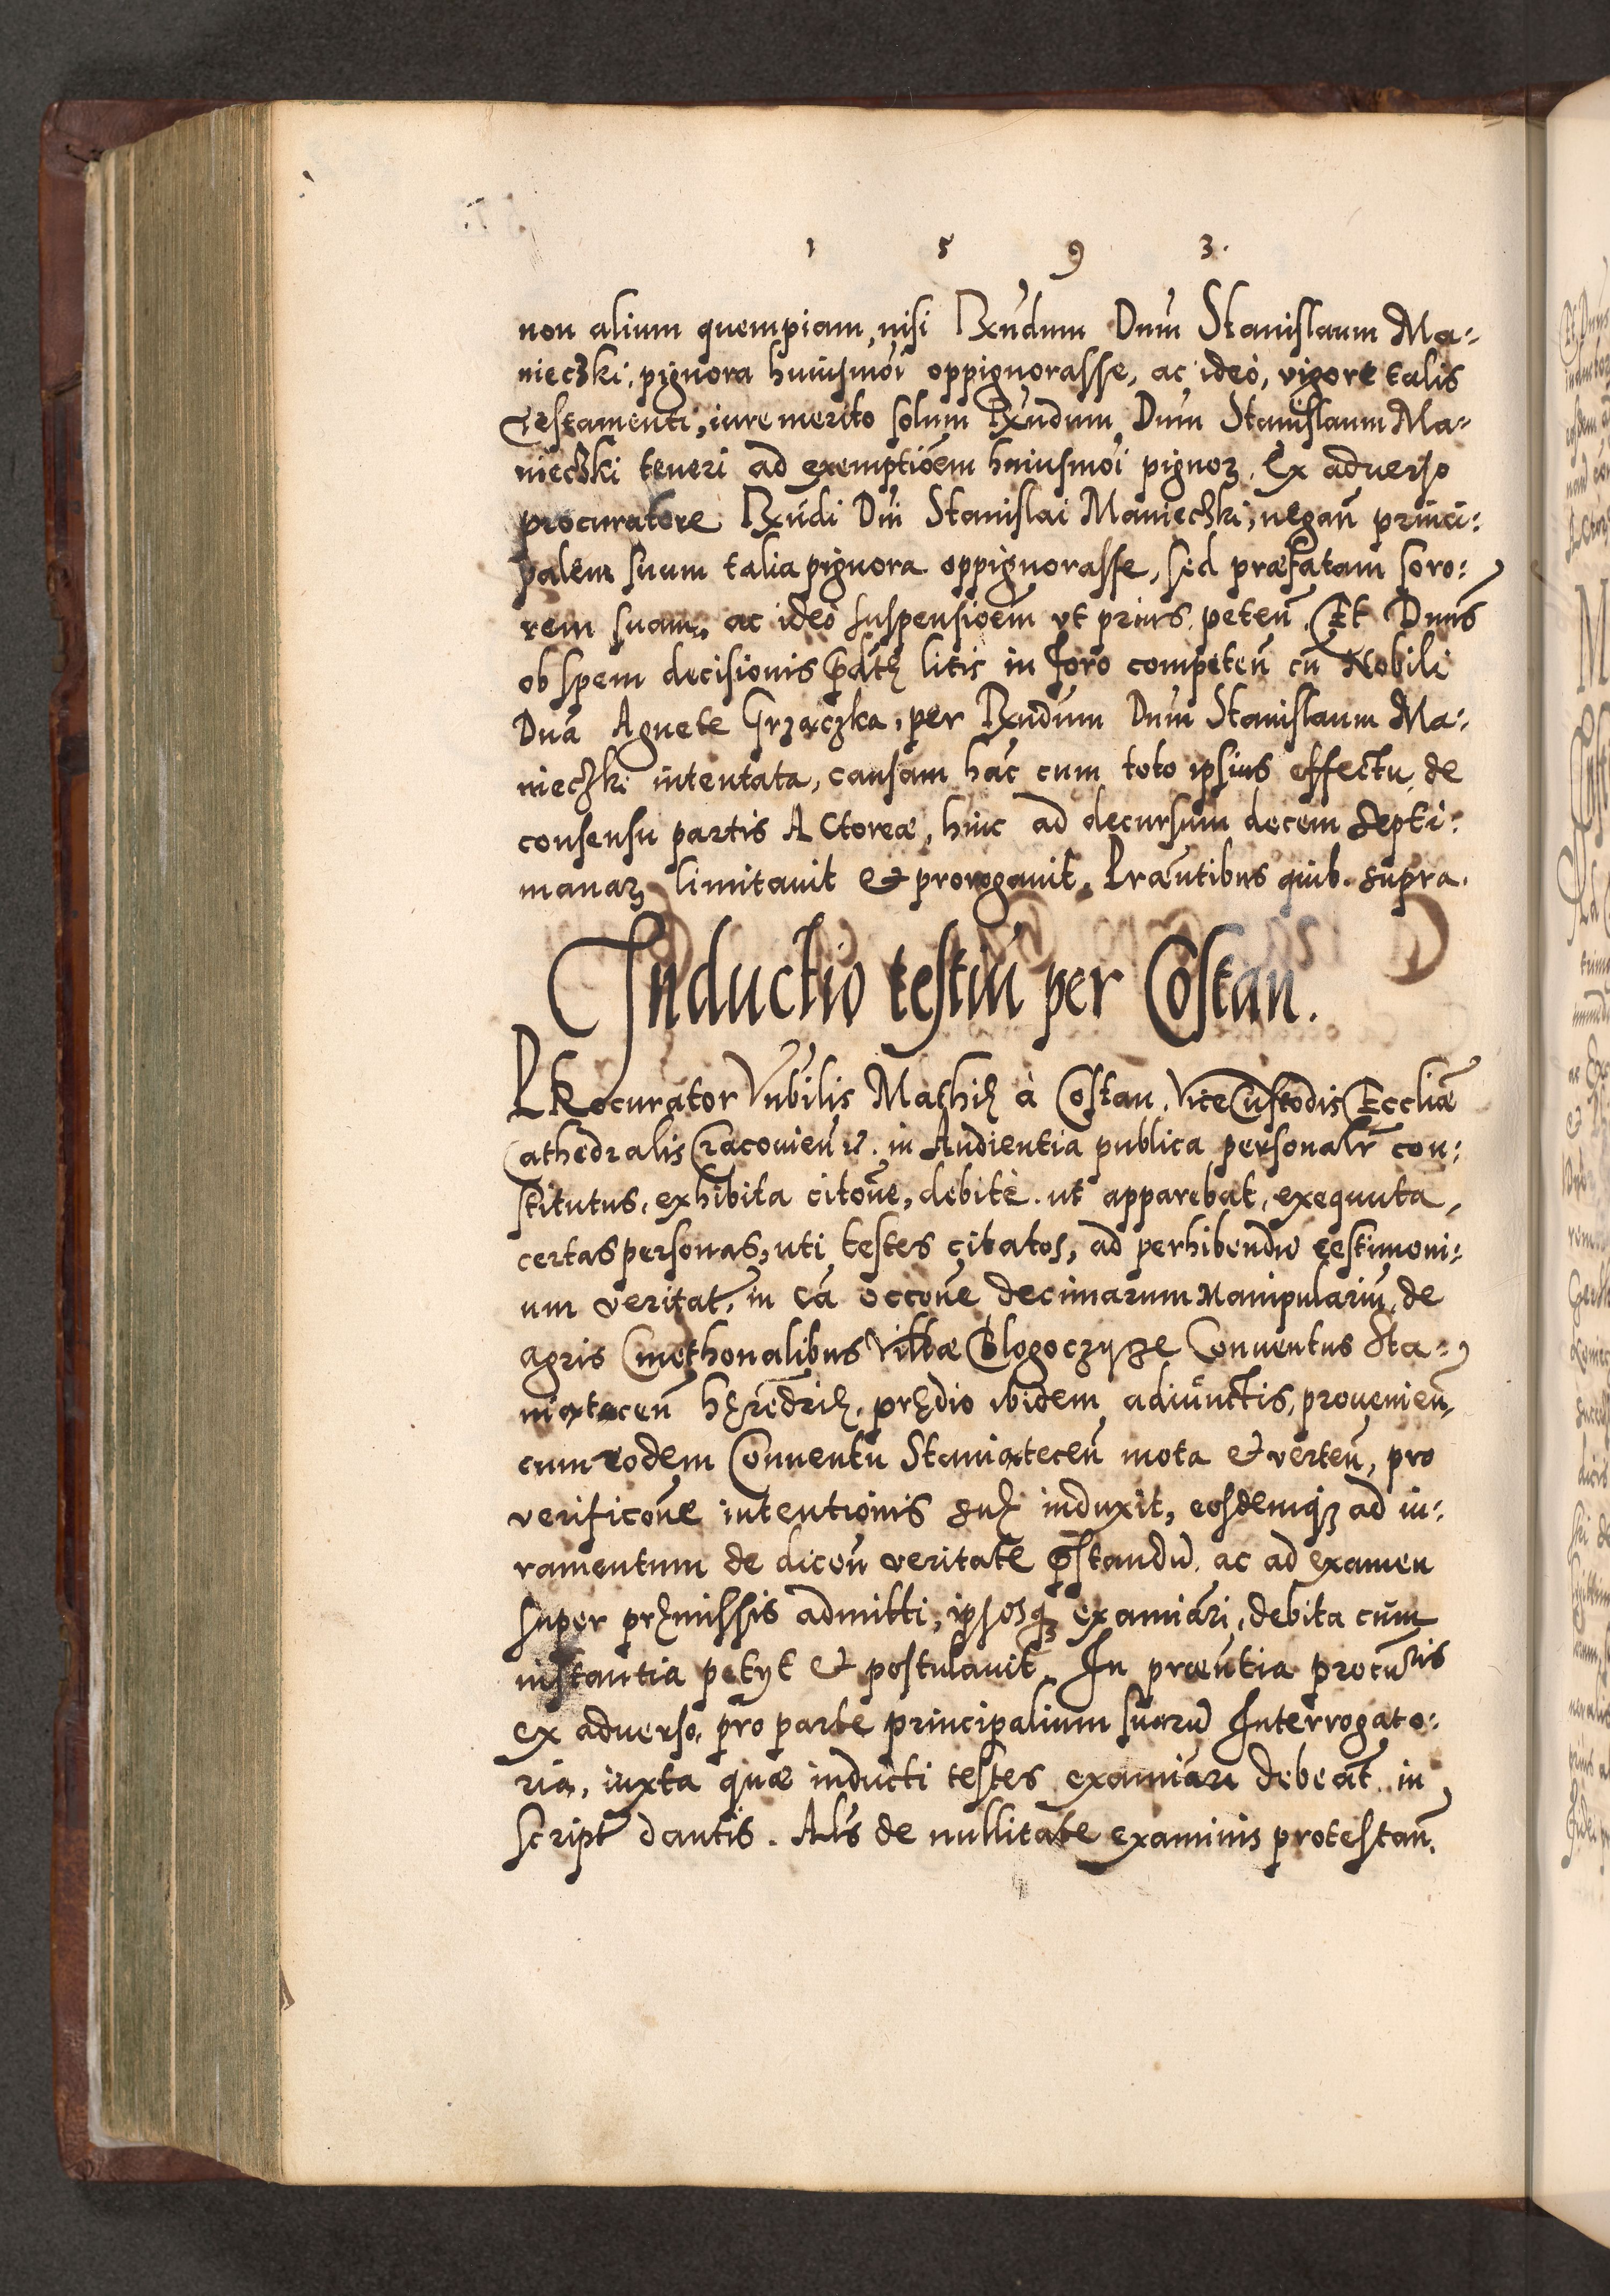 1 5 9 3.
non alium quempiam, nisi Rxndum Dnm̄ Stanislaum Ma-
nieczki, pignora huiusmōi oppignorasse, ac ideò, vigore talis
Testamenti, iure merito solum Rxndum Dnm̄ Stanislaum Ma-
nieczki teneri ad exemptiōem huiusmōi pignoꝝ. Ex aduerso
procuratore Rxndi Dnī Stanislai Manieczki, negan̄ princi:
palem suum talia pignora oppignorasse, sed præfatam soro:
rem suam, ac ideò suspensiōem vt prius peten̄. Et Dnūs
ob spem decisionis p̄dctę litis in foro competen̄ cū Nobili
Dnā Agnete Grzączka, per Rxndum Dnm̄ Stanislaum Ma-
nieczki intentata, causam hāc cum toto ipsius effectu, de
consensu partis Actoreæ, hinc ad decursum decem Septi:
manaꝝ limitauit & prorogauit. Præn̄tibus quib. supra.
Inductio testiū per Costan.
PRocurator Vn̄bilis Mathię à Costan. ViceCustodis Eccliæ
Cathedralis Cracouien̄ &. in Audientia publica personalr̄ con:
stitutus, exhibita citōne, debitè. ut apparebat, exequuta,
certas personas, uti testes citatos, ad perhibendū testimoni:
um veritat̄, in cā occōne decimarum Manipulariū, de
agris Cmethonalibus Villæ Głogoczyze Conuentus Sta-
niątecen̄ hęrēdrię, prędio ibidem adiunctis, prouenien̄,
cum eodem Conuentu Staniątecen̄ mota & verten̄, pro
verificōne intentionis suę induxit, eosdemqꝫ ad iu:
ramentum de dicen̄ veritate p̄standū ac ad examen
super pręmissis admitti, ipsosqꝫ examiāri, debita cum
instantia petyt & postulauit. In præn̄tia procur̄is
ex aduerso, pro parte principalium suorū Interrogato:
ria, iuxta quæ inducti testes examiāri debeāt in
script̄ dantis. Als̄ de nullitate examinis protestan̄.